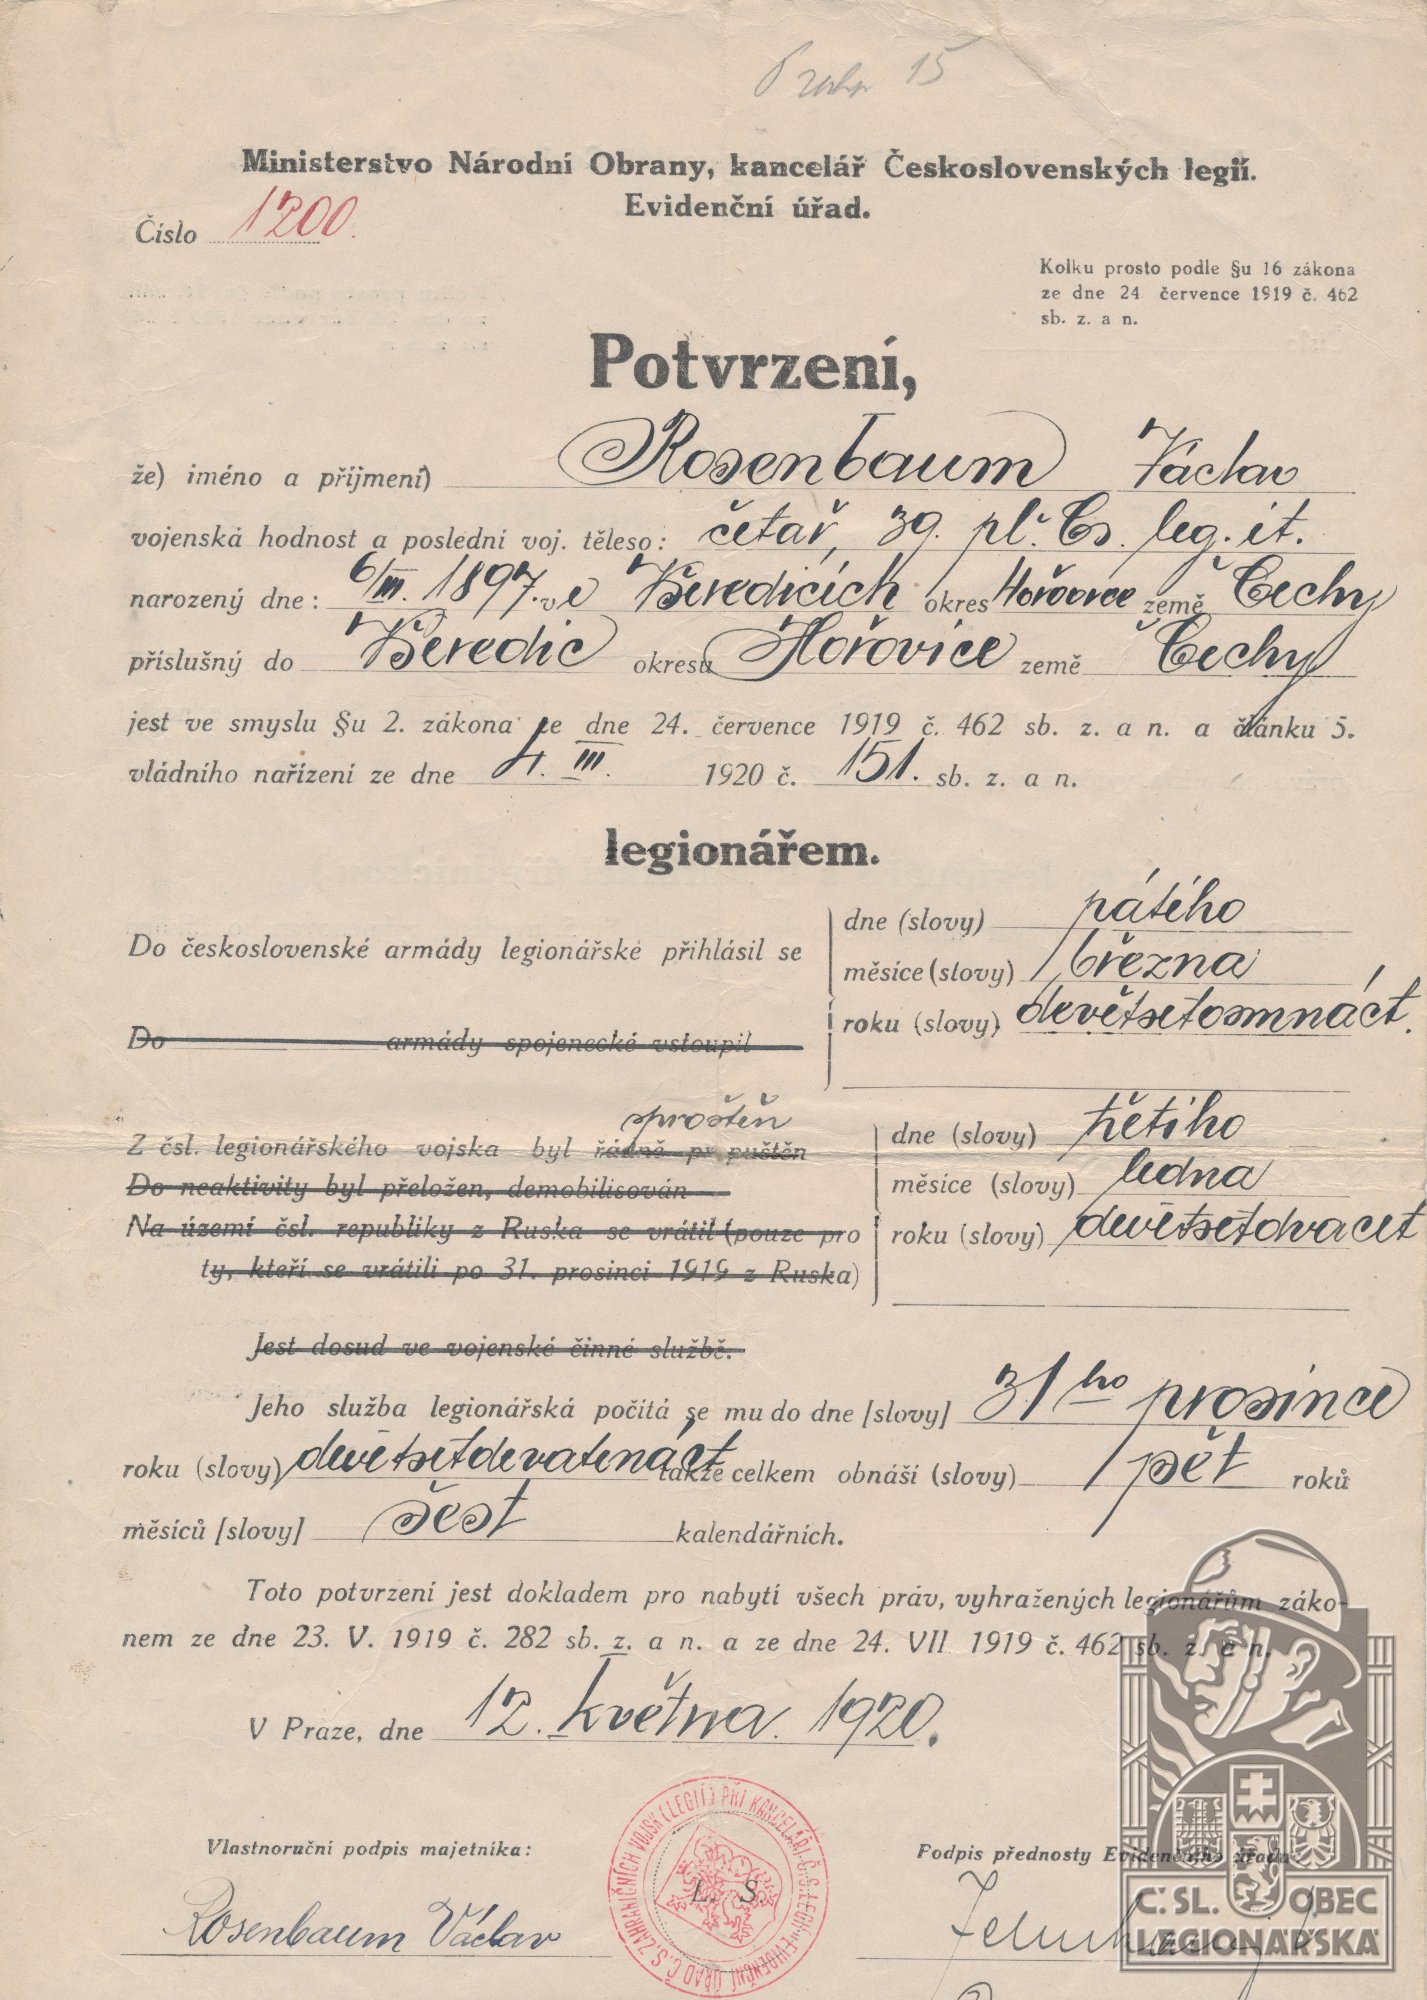 Praha 15
Ministerstvo Národní Obrany, kancelář Československých legií.
Evidenční úřad.
Číslo 1200.
Kolku prosto podle §u 16 zákona
ze dne 24 července 1919 č. 462
sb. z. a n.
Potvrzení,
že) iméno a příjmení) Rosenbaum Václav
vojenská hodnost a poslední voj. těleso: četař, 39. pl. Čs. leg. it.
narozený dne: 6/III. 1897. v e Keredicích okres Hořovice země Čechy
příslušný do Keredic okresu Hořovice země Čechy
jest ve smyslu §u 2. zákona ze dne 24. července 1919 č. 462 sb. z. a n. a článku 5.
vládního nařízení ze dne 4. III. 1920 č. 151. sb. z. a n.
legionářem.
Do československé armády legionářské přihlásil se
dne (slovy) pátého
měsíce (slovy) března
roku (slovy) devětsetosmnáct.
Do armády spojenecké vstoupil
sproštěn
Z čsl. legionářského vojska byl řádně propuštěn
Do neaktivity byl přeložen, demobilisován
Na území čsl. republiky z Ruska se vrátil (pouze pro
ty, kteří se vrátili po 31. prosinci 1919 z Ruska)
dne (slovy) třetího
měsíce (slovy) ledna
roku (slovy) devětsetdvacet
Jest dosud ve vojenské činné službě.
Jeho služba legionářská počítá se mu do dne [slovy] 31ho prosince
roku (slovy) devětsetdevatenáct takže celkem obnáší (slovy) pět roků
měsíců [slovy] šest kalendářních.
Toto potvrzení jest dokladem pro nabytí všech práv, vyhražených legionářům záko-
nem ze dne 23. V. 1919 č. 282 sb. z. a n. a ze dne 24. VII 1919 č. 462 sb. z. a n.
V Praze, dne 12. května 1920.
Vlastnoruční podpis majetníka:
Podpis přednosty Evidenčního úřadu:
Č. S. ZAHRANIČNÍCH VOJSK (LEGIÍ) PŘI KANCELÁŘI Č. S. LEGIÍ EVIDENČNÍ ÚŘAD
L. S.
Rosenbaum Václav
Č. SL. OBEC
LEGIONÁŘSKÁ